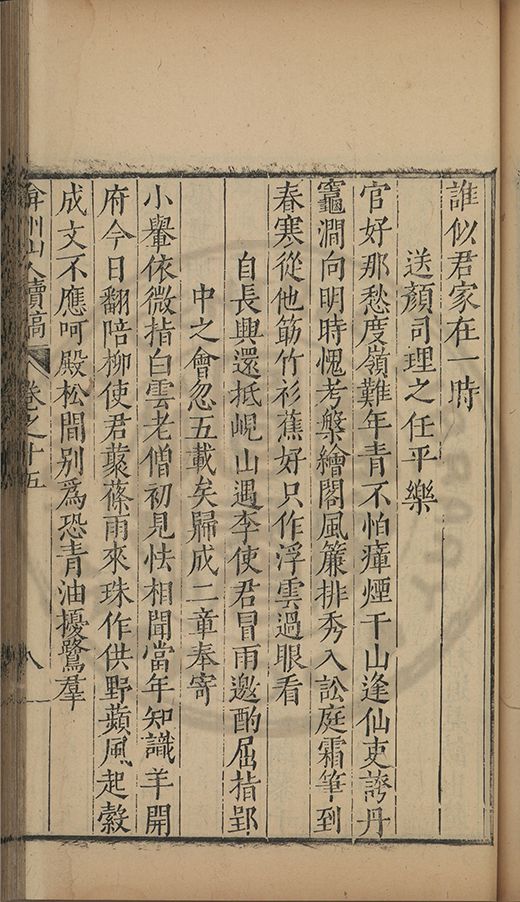 誰似君家在一時
送顏司理之任平樂
官好那愁度嶺難年青不怕瘴煙干山逢仙吏誇丹
竈澗向明時愧考槃繪閣風簾排秀入訟庭霜筆到
春寒從他筋竹衫蕉好只作浮雲過眼看
自長興還抵峴山遇李使君冒雨邀酌屈指郢
中之會忽五載矣歸成二章奉寄
小轝依微指白雲老僧初見怯相聞當年知識羊開
府今日翻陪柳使君蓑蓧雨來珠作供野蘋風起縠
成文不應呵殿松間別爲恐青油擾鷺羣
弇州山人續稿 卷之十五 八